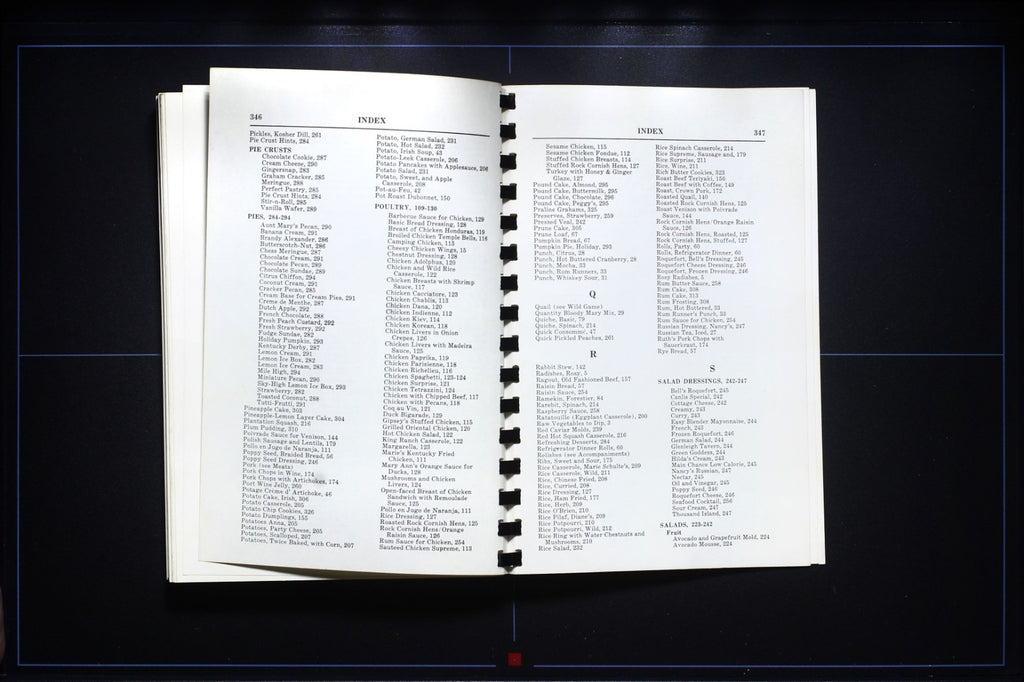 346
INDEX
Pickles, Kosher Dill, 261
Pie Crust Hints, 284
PIE CRUSTS
Chocolate Cookie, 287
Cream Cheese, 290
Gingersnap, 283
Graham Cracker, 285
Meringue, 288
Perfect Pastry, 285
Pie Crust Hints, 284
Stir-n-Roll, 285
Vanilla Wafer, 289
PIES, 284-294
Aunt Mary's Pecan, 290
Banana Cream, 291
Brandy Alexander, 286
Butterscotch-Nut, 286
Chess Meringue, 287
Chocolate Cream, 291
Chocolate Pecan, 289
Chocolate Sundae, 289
Citrus Chiffon, 294
Coconut Cream, 291
Cracker Pecan, 285
Cream Base for Cream Pies, 291
Creme de Menthe, 287
Dutch Apple, 292
French Chocolate, 288
Fresh Peach Custard, 292
Fresh Strawberry, 292
Fudge Sundae, 282
Holiday Pumpkin, 293
Kentucky Derby, 287
Lemon Cream, 291
Lemon Ice Box, 282
Lemon Ice Cream, 283
Mile High, 294
Miniature Pecan, 290
Sky-High Lemon Ice Box, 293
Strawberry, 282
Toasted Coconut, 288
Tutti-Frutti, 291
Pineapple Cake, 303
Pineapple-Lemon Layer Cake, 304
Plantation Squash, 216
Plum Pudding, 310
Poivrade Sauce for Venison, 144
Polish Sausage and Lentils, 179
Pollo en Jugo de Naranja, 111
Poppy Seed, Braided Bread, 56
Poppy Seed Dressing, 246
Pork (see Meats)
Pork Chops in Wine, 174
Pork Chops with Artichokes, 174
Port Wine Jelly, 260
Potage Creme d' Artichoke, 46
Potato Cake, Irish, 306
Potato Casserole, 205
Potato Chip Cookies, 326
Potato Dumplings, 155
Potatoes Anna, 205
Potatoes, Party Cheese, 205
Potatoes, Scalloped, 207
Potatoes, Twice Baked, with Corn, 207
Potato, German Salad, 231
Potato, Hot Salad, 232
Potato, Irish Soup, 43
Potato-Leek Casserole, 206
Potato Pancakes with Applesauce, 206
Potato Salad, 231
Potato, Sweet, and Apple
Casserole, 208
Pot-au-Feu, 42
Pot Roast Dubonnet, 150
POULTRY, 109-130
Barbecue Sauce for Chicken, 129
Basic Bread Dressing, 128
Breast of Chicken Honduras, 119
Broiled Chicken Temple Bells, 116
Camping Chicken, 113
Cheesy Chicken Wings, 15
Chestnut Dressing, 128
Chicken Adolphus, 120
Chicken and Wild Rice
Casserole, 122
Chicken Breasts with Shrimp
Sauce, 117
Chicken Cacciatore, 123
Chicken Chablis, 113
Chicken Dana, 120
Chicken Indienne, 112
Chicken Kiev, 114
Chicken Korean, 118
Chicken Livers in Onion
Crepes, 126
Chicken Livers with Madeira
Sauce, 125
Chicken Paprika, 119
Chicken Parisienne, 118
Chicken Richelieu, 116
Chicken Spaghetti, 123-124
Chicken Surprise, 121
Chicken Tetrazzini, 124
Chicken with Chipped Beef, 117
Chicken with Pecans, 118
Coq au Vin, 121
Duck Bigarade, 129
Gipsey's Stuffed Chicken, 115
Grilled Oriental Chicken, 120
Hot Chicken Salad, 122
King Ranch Casserole, 122
Margarella, 123
Marie's Kentucky Fried
Chicken, 111
Mary Ann's Orange Sauce for
Ducks, 128
Mushrooms and Chicken
Livers, 124
Open-faced Breast of Chicken
Sandwich with Remoulade
Sauce, 125
Pollo en Jugo de Naranja, 111
Rice Dressing, 127
Roasted Rock Cornish Hens, 125
Rock Cornish Hens/Orange
Raisin Sauce, 126
Rum Sauce for Chicken, 254
Sauteed Chicken Supreme, 113
INDEX
347
Sesame Chicken, 115
Sesame Chicken Fondue, 112
Stuffed Chicken Breasts, 114
Stuffed Rock Cornish Hens, 127
Turkey with Honey & Ginger
Glaze, 127
Pound Cake, Almond, 295
Pound Cake, Buttermilk, 295
Pound Cake, Chocolate, 296
Pound Cake, Peggy's, 295
Praline Grahams, 325
Preserves, Strawberry, 259
Pressed Veal, 242
Prune Cake, 305
Prune Loaf, 67
Pumpkin Bread, 67
Pumpkin Pie, Holiday, 293
Punch, Citrus, 28
Punch, Hot Buttered Cranberry, 28
Punch, Mocha, 33
Punch, Rum Runners, 33
Punch, Whiskey Sour, 31
Q
Quail (see Wild Game)
Quantity Bloody Mary Mix, 29
Quiche, Basic, 79
Quiche, Spinach, 214
Quick Consommé, 47
Quick Pickled Peaches, 261
R
Rabbit Stew, 142
Radishes, Rosy, 5
Ragout, Old Fashioned Beef, 157
Raisin Bread, 57
Raisin Sauce, 254
Ramekin, Forestier, 84
Rarebit, Spinach, 214
Raspberry Sauce, 258
Ratatouille (Eggplant Casserole), 200
Raw Vegetables to Dip, 3
Red Caviar Molds, 239
Red Hot Squash Casserole, 216
Refreshing Desserts, 284
Refrigerator Dinner Rolls, 60
Relishes (see Accompaniments)
Ribs, Sweet and Sour, 175
Rice Casserole, Marie Schulte's, 209
Rice Casserole, Wild, 211
Rice, Chinese Fried, 208
Rice, Curried, 208
Rice Dressing, 127
Rice, Ham Fried, 177
Rice, Herb, 209
Rice O'Brien, 210
Rice Pilaf, Diane's, 209
Rice Potpourri, 210
Rice Potpourri, Wild, 212
Rice Ring with Water Chestnuts and
Mushrooms, 210
Rice Salad, 232
Rice Spinach Casserole, 214
Rice Supreme, Sausage and, 179
Rice Surprise, 211
Rice, Wine, 211
Rich Butter Cookies, 323
Roast Beef Teriyaki, 156
Roast Beef with Coffee, 149
Roast, Crown Pork, 172
Roasted Quail, 140
Roasted Rock Cornish Hens, 125
Roast Venison with Poivrade
Sauce, 144
Rock Cornish Hens/Orange Raisin
Sauce, 126
Rock Cornish Hens, Roasted, 125
Rock Cornish Hens, Stuffed, 127
Rolls, Party, 60
Rolls, Refrigerator Dinner, 60
Roquefort, Bell's Dressing, 245
Roquefort Cheese Dressing, 246
Roquefort, Frozen Dressing, 246
Rosy Radishes, 5
Rum Butter Sauce, 258
Rum Cake, 308
Rum Cake, 313
Rum Frosting, 308
Rum, Hot Buttered, 33
Rum Runner's Punch, 33
Rum Sauce for Chicken, 254
Russian Dressing, Nancy's, 247
Russian Tea, Iced, 27
Ruth's Pork Chops with
Sauerkraut, 174
Rye Bread, 57
S
SALAD DRESSINGS, 242-247
Bell's Roquefort, 245
Canlis Special, 242
Cottage Cheese, 242
Creamy, 243
Curry, 243
Easy Blender Mayonnaise, 244
French, 243
Frozen Roquefort, 246
German Salad, 244
Glenleigh Tavern, 244
Green Goddess, 244
Hilda's Cream, 243
Main Chance Low Calorie, 245
Nancy's Russian, 247
Nectar, 245
Oil and Vinegar, 245
Poppy Seed, 246
Roquefort Cheese, 246
Seafood Cocktail, 256
Sour Cream, 247
Thousand Island, 247
SALADS, 223-242
Fruit
Avocado and Grapefruit Mold, 224
Avocado Mousse, 224